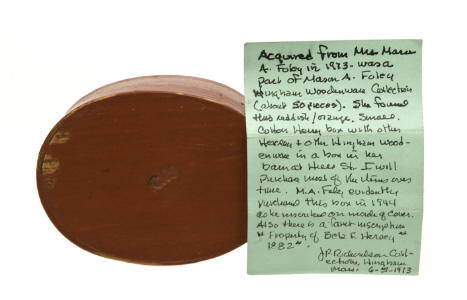 Acquired from Mrs. Mason
A. Foley in 1973 - was a
part of Mason A. Foley
Hingham Woodenware Collection
(about 50 pieces). She found
this reddish/orange, small
Hersey box with other
Hersey & other Hingham wood-
enware in a box in her
barn at Hersey St. I will
purchase most of the items over
time. M.A. Foley evidently
purchased this box in 1944
as he inscribed on inside of cover.
Also there is a faint inscription
"Property of E. Hersey
1882".
J.P. Richardson Coll-
ection, Hingham
Mass. 6-5-1973